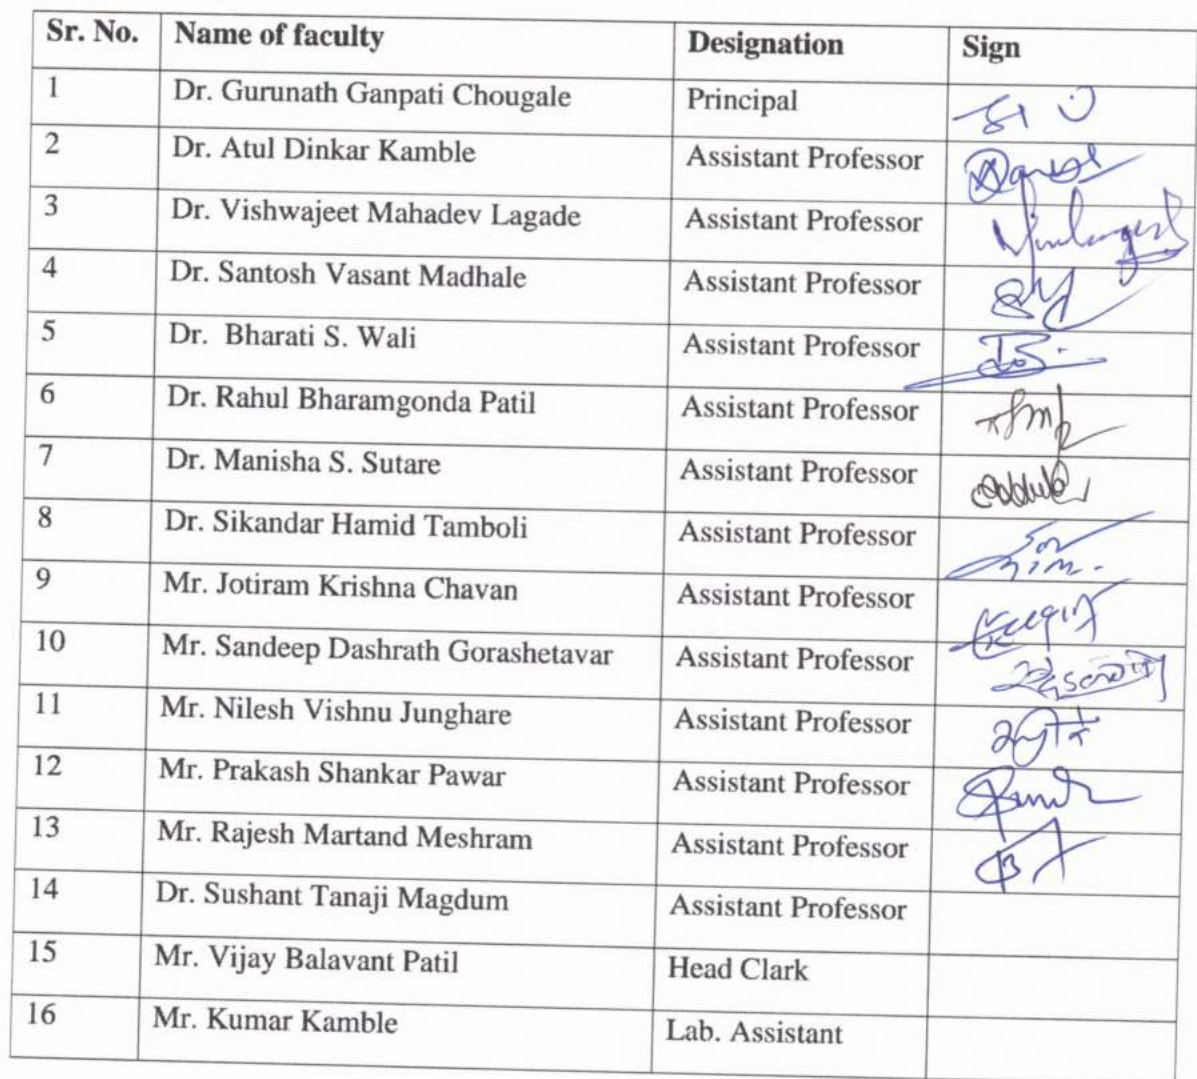 Sr. No. Name of faculty Designation Sign
1 Dr. Gurunath Ganpati Chougale Principal
2 Dr. Atul Dinkar Kamble Assistant Professor
3 Dr. Vishwajeet Mahadev Lagade Assistant Professor
4 Dr. Santosh Vasant Madhale Assistant Professor
5 Dr. Bharati S. Wali Assistant Professor
6 Dr. Rahul Bharamgonda Patil Assistant Professor
7 Dr. Manisha S. Sutare Assistant Professor
8 Dr. Sikandar Hamid Tamboli Assistant Professor
9 Mr. Jotiram Krishna Chavan Assistant Professor
10 Mr. Sandeep Dashrath Gorashetavar Assistant Professor
11 Mr. Nilesh Vishnu Junghare Assistant Professor
12 Mr. Prakash Shankar Pawar Assistant Professor
13 Mr. Rajesh Martand Meshram Assistant Professor
14 Dr. Sushant Tanaji Magdum Assistant Professor
15 Mr. Vijay Balavant Patil Head Clark
16 Mr. Kumar Kamble Lab. Assistant